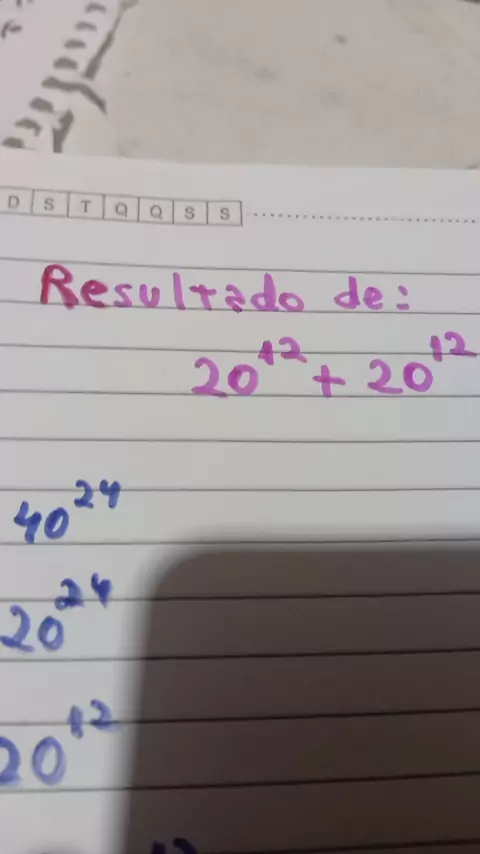 D S T Q Q S S
Resultado de:
20¹² + 20¹²
40²⁴
20²⁴
20¹²
12